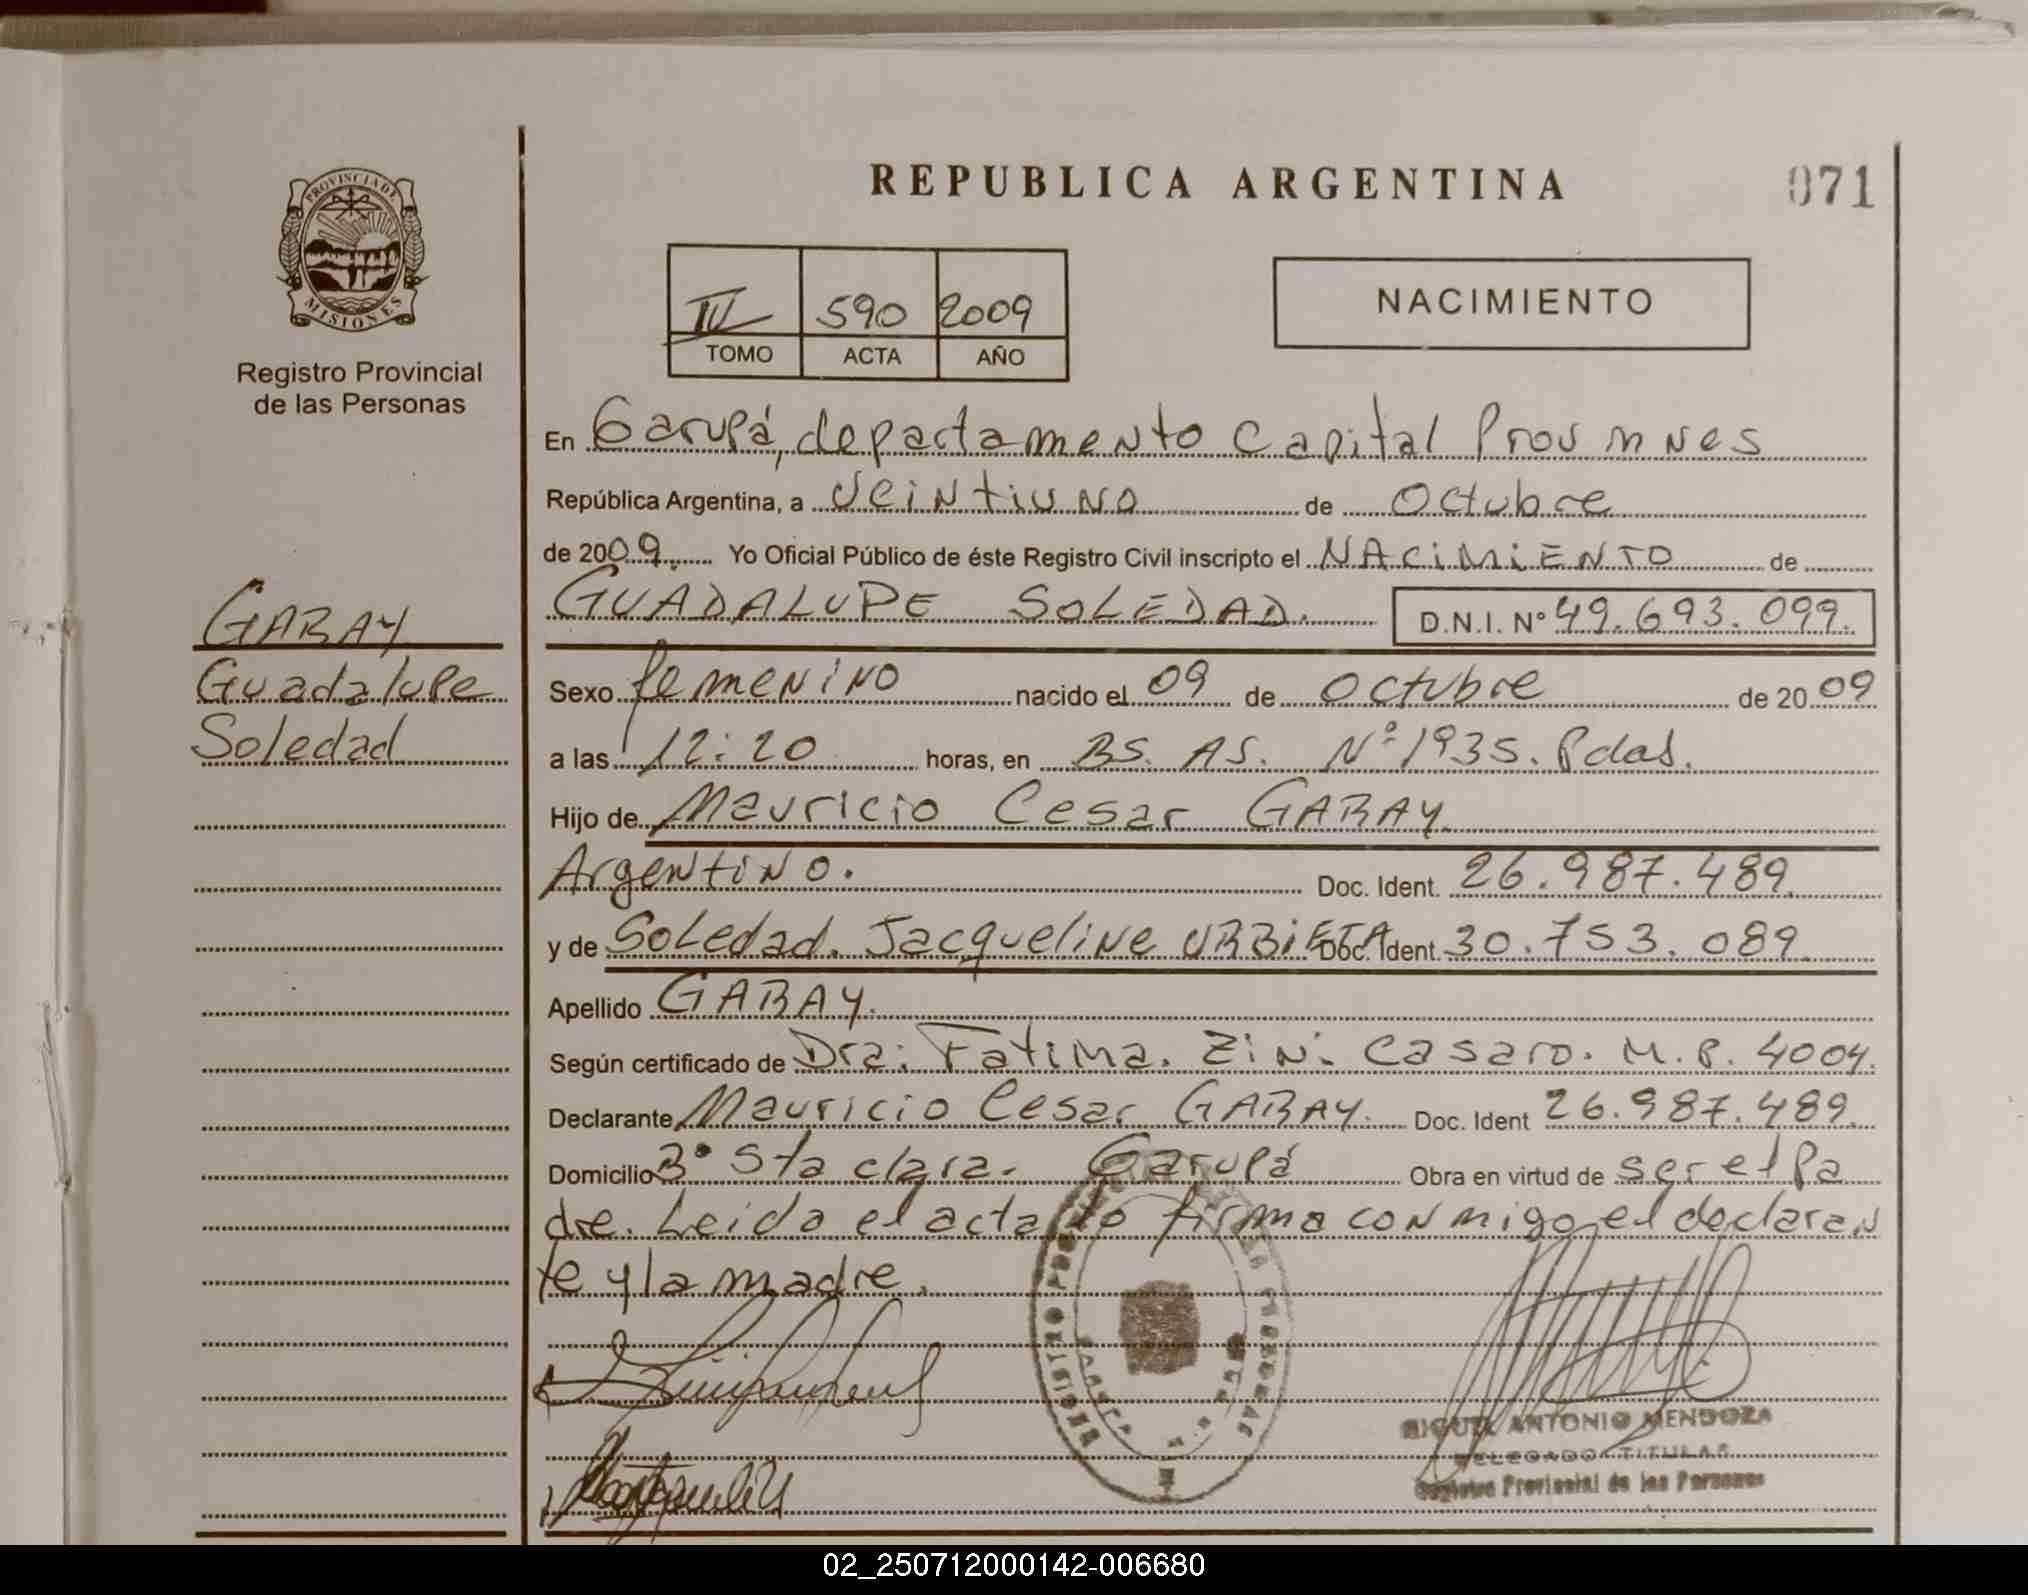 REPUBLICA ARGENTINA
071
PROVINCIA DE
MISIONES
Registro Provincial
de las Personas
IV 590 2009
TOMO ACTA AÑO
NACIMIENTO
En Garupá, departamento Capital Prov mnes
República Argentina, a veintiuno de Octubre
de 2009. Yo Oficial Público de éste Registro Civil inscripto el NACIMIENTO de
GUADALUPE SOLEDAD. D.N.I. Nº 49.693.099.
GARAY
Guadalupe
Soledad
Sexo femenino nacido el 09 de Octubre de 2009
a las 12:20 horas, en BS. AS. Nº 1935. Pdas.
Hijo de Mauricio Cesar GARAY
Argentino. Doc. Ident. 26.987.489.
y de Soledad. Jacqueline URBIETA Doc. Ident. 30.753.089.
Apellido GARAY.
Según certificado de Dra: Fatima. Zini. Casaro. M.P. 4004.
Declarante Mauricio Cesar GARAY. Doc. Ident 26.987.489.
Domicilio Bº Sta clara. Garupá Obra en virtud de ser el Pa
dre. Leida el acta lo firma conmigo el declaran
te y la madre.
MIGUEL ANTONIO MENDOZA
DELEGADO TITULAR
Registro Provincial de las Personas
02_250712000142-006680